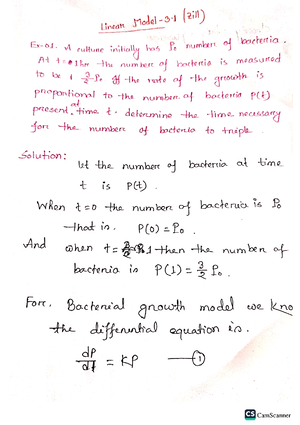 Linear Model - 3.1 (Zill)
Ex-01. A culture initially has P₀ number of bacteria.
At t = 1 hr the number of bacteria is measured
to be 3/2 P₀. If the rate of the growth is
proportional to the number of bacteria P(t)
present at time t. determine the time necessary
for the number of bacteria to triple.
Solution:
let the number of bacteria at time
t is P(t).
When t=0 the number of bacteria is P₀
that is. P(0) = P₀.
And when t= 1 then the number of
bacteria is P(1) = 3/2 P₀.
For. Bacterial growth model we kno
the differential equation is.
dP/dt = KP —①
CS CamScanner